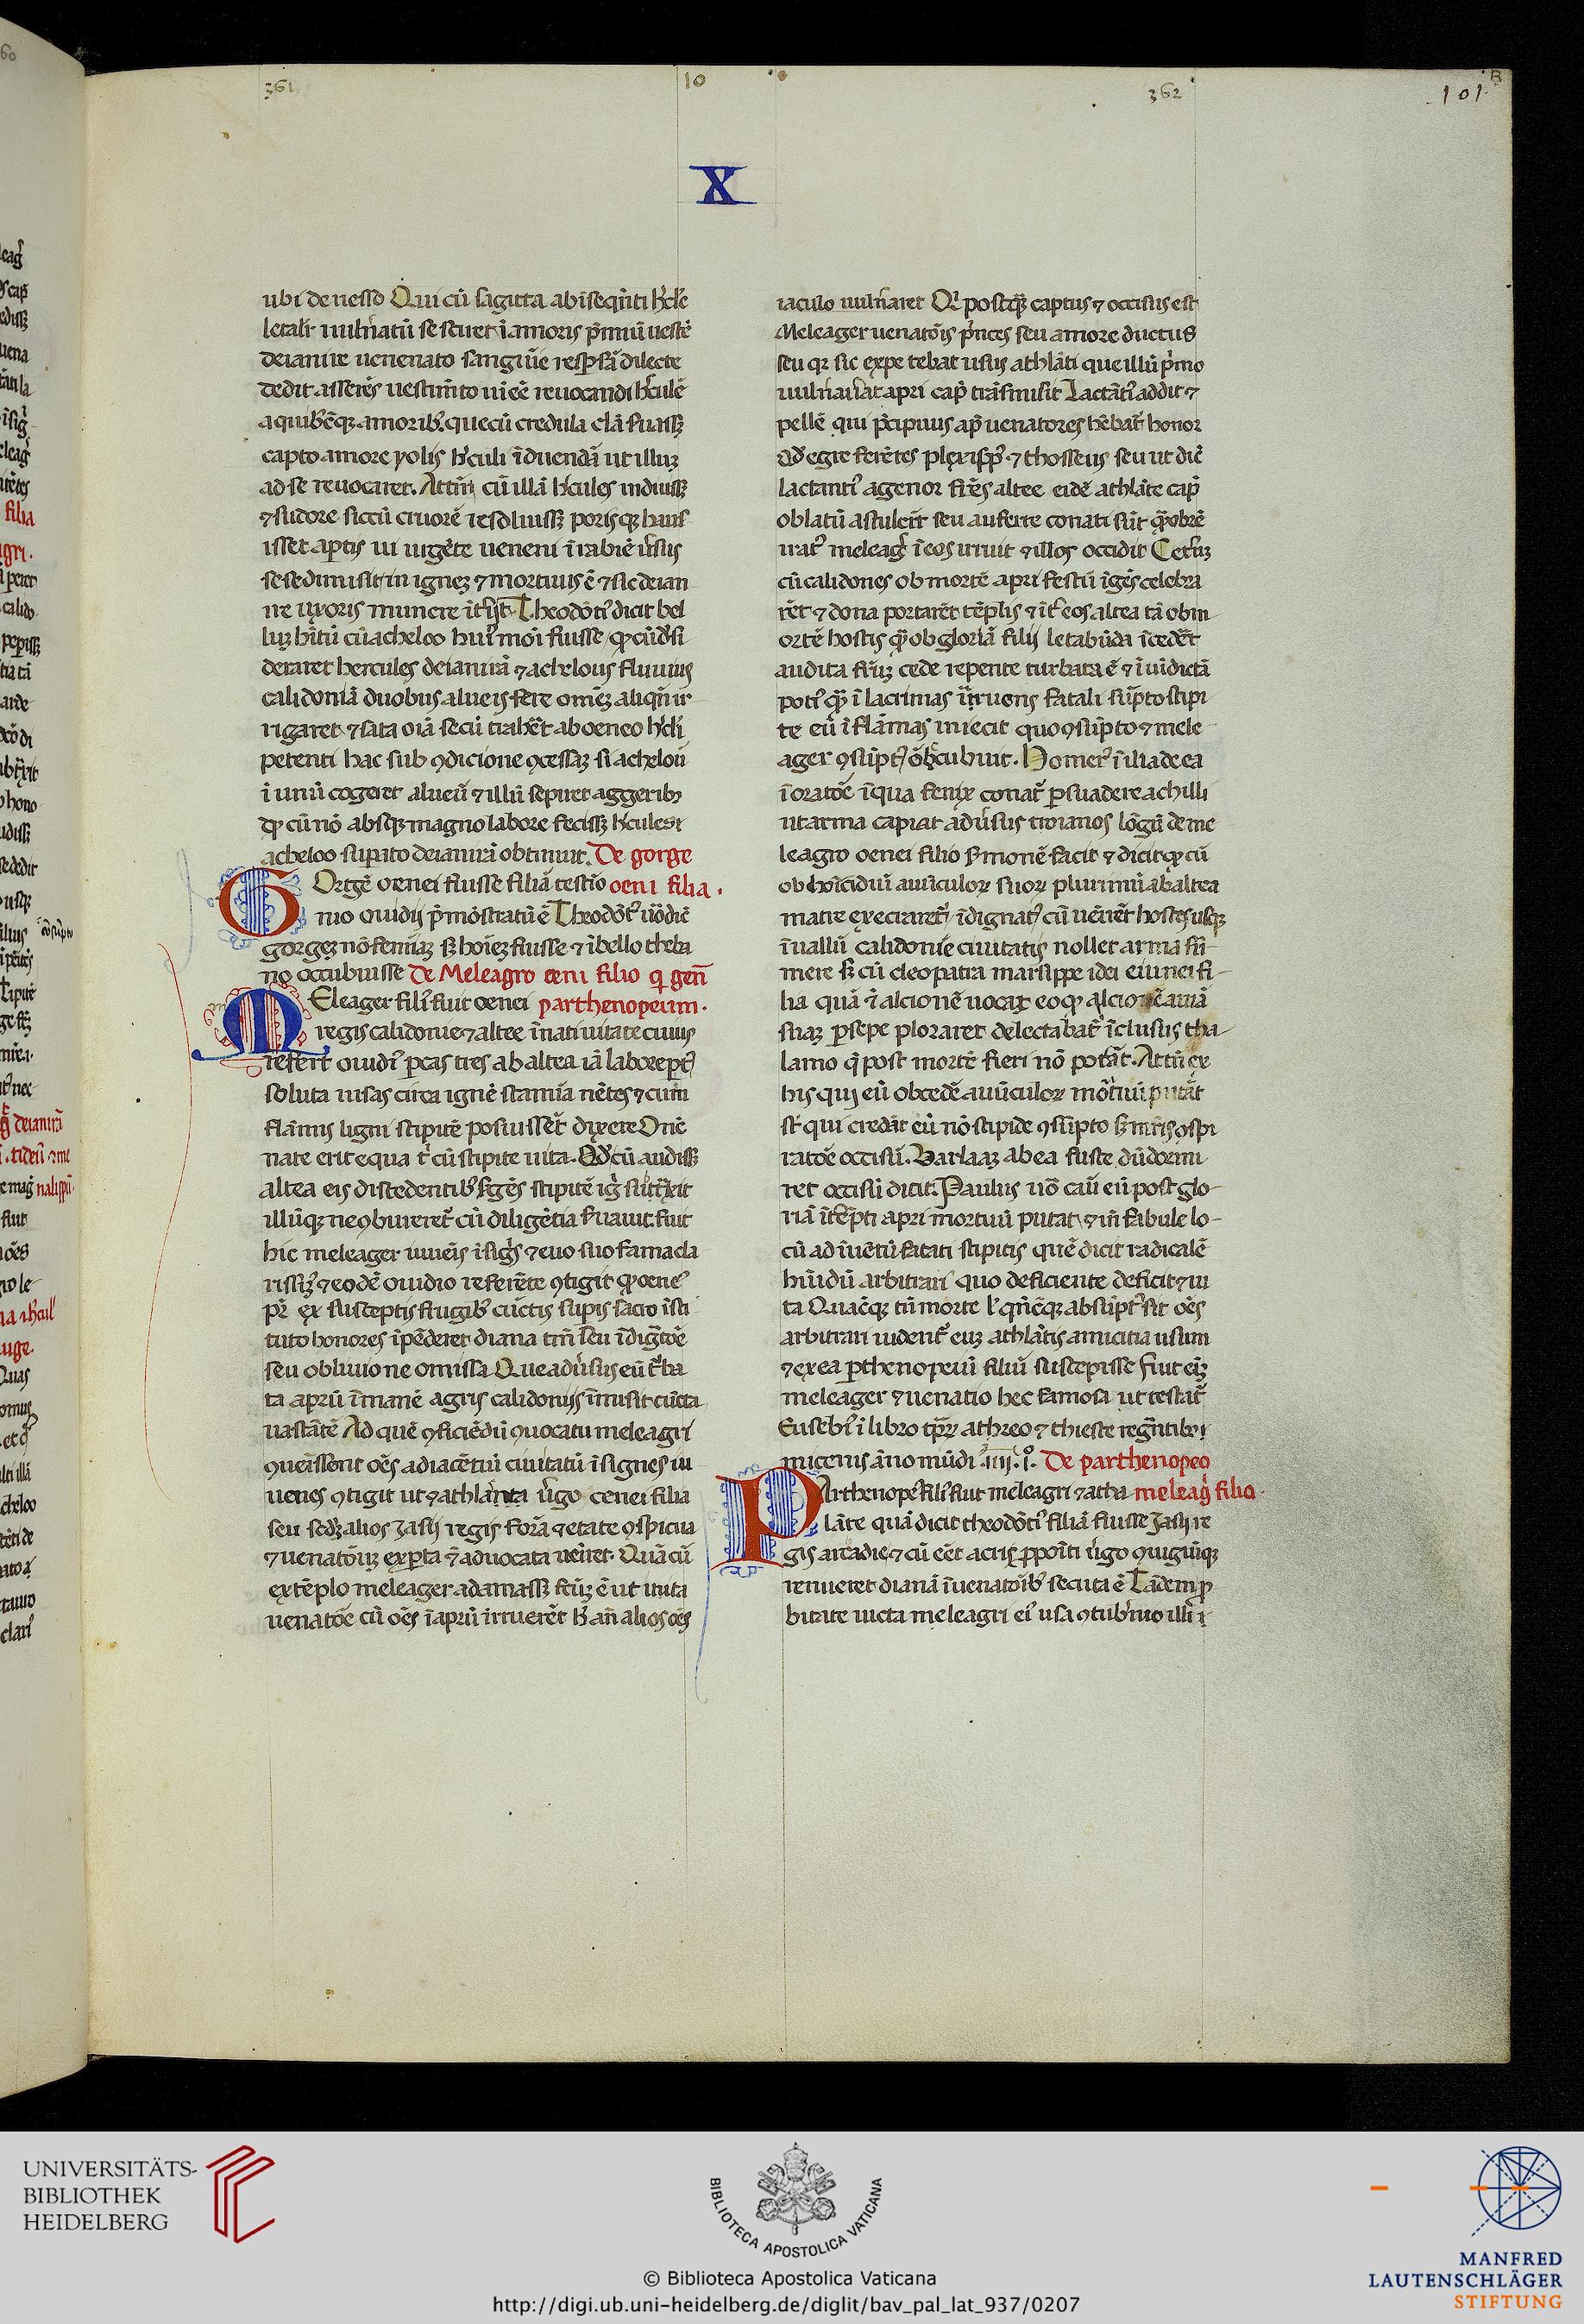 361
10
362
101
X
ubi de nesso Qui cū sagitta ab īseqn̄ti hr̄cle
letali uuln̄atū se sētiret ī amoris p̄miū uestē
deianire uenenato sanguīe resꝑsā dilecte
dedit asserēs uestimēto uī eē reuocandi hr̄culē
a quibꝰcūqꝫ amoribꝰ. que cū credula clā suassꝫ
capto amore yolis hr̄culi īduendā ut illuꝫ
ad se reuocaret. Attn̄ cū illā hr̄cules induissꝫ
⁊ sudore siccū cruorē resoluissꝫ porisqꝫ haus
isset aꝑtis ui urgēte ueneni ī rabiē ūsus
sese dimisit in igneꝫ ⁊ mortuus ē ⁊ sic deian
ire uxoris munere īt̄ijt. Theodōtꝰ dicit bel
luꝫ hītū cū acheloo huiꝰmōi fuisse ꝙ cū dsi
deraret hercules deianirā ⁊ achelous fluuius
calidoniā duobus alueis fere omēꝫ aliqn̄ ir
rigaret ⁊ sata oīa secū trahēt ab oeneo hr̄cli
petenti hac sub ꝯdicione ꝯcessaꝫ si acheloū
ī unū cogeret alueū ⁊ illū sepiret aggeribꝰ
ꝙ cū nō absqꝫ magno labore fecissꝫ hr̄cules ⁊
acheloo suꝑato deianirā obtinuit. De gorge
Gorgē oenei fuisse filiā testīo oeni filia.
nio ouidij p̄mōstratū ē Theodōtꝰ uō dīc̄
gorgeꝫ nō feminaꝫ sꝫ hoīeꝫ fuisse ⁊ ī bello theba
no occubuisse De Meleagro oeni filio q̇ gen̄
Meleager filꝰ fuit oenei parthenopeum.
regis calidonie ⁊ altee ī natiuitate cuius
refert ouidꝰ ꝑcas tres ab altea iā labore ꝑtꝰ
soluta uisas circa ignē stamīa nētes ⁊ cum
flāmis ligni stipitē posuissēt dixere O nē
nate erit equa t̄ cū stipite uita. Qd̄ cū audissꝫ
altea eis discedentibꝰ sgēs stipitē ig̃ subt̄xit
illūqꝫ ne ꝯbureret̄ cū diligētia s̄uauit. fuit
hic meleager iuuēis īsig̃s ⁊ euo suo fama cla
rissꝰ ⁊ eodē ouidio referēte ꝯtigit ꝙ oeneꝰ
pr̄ ex susceptis frugibꝰ cūctis suꝑis sacro īsti
tuto honores īpēderet diana tm̄ seu īdig̃tōe
seu obliuione omissa Que adūsus eū t̄ba
ta aprū īmanē agris calidonijs īmisit cūcta
uastātē Ad quē ꝯficiēdū ꝯuocatu meleagri
ꝯueissent oēs adiacētiū ciuitatū īsignes iu
uenes ꝯtigit ut ⁊ athlanta ūgo cenei filia
seu scdꝫ alios Jasij regis forā ⁊ etate ꝯspicua
⁊ uenatōnuꝫ exꝑta ⁊ aduocata uēiret. Quā cū
extēplo meleager adamassꝫ fcūꝫ ē ut inita
uenatōe cū oēs ī aprū irruerēt h̄ an̄ alios oēs
iaculo uulnaret Qꝛ postq̄ captus ⁊ occisus est
Meleager uenatōis p̄nces seu amore ductus
seu qꝛ sic expetebat usus athlāti que illū p̄mo
uulnauat apri cap̄ trāsmisit Lactātꝰ addit ⁊
pellē qui p̄cipuus ap̄ uenatores hēbat̄ honor
Qd̄ egre ferētes plexippꝰ ⁊ thosseus seu ut dic̄
lactantꝰ agenor frēs altee eidē athlāte cap̄
oblatū astulert seu auferre conati sūt q̄obrē
iratꝰ meleag̃ ī eos irruit ⁊ illos occidit Cet̄uꝫ
cū calidones ob mortē apri festū īgēs celebra
rēt ⁊ dona portarēt tēplis ⁊ īt̄ eos altea tā ob m
ortē hostis q̄ ob gloriā filij letabūda īcedēt
audita frūꝫ cede repente turbata ē ⁊ ī uīdictā
potiꝰ q̄ ī lacrimas irruens fatali sūpto stipi
te eū ī flāmas iniecit quo ꝯsūpto ⁊ mele
ager ꝯsūptꝰ occubuit. Homerꝰ ī iliade ea
ī oratōe ī qua fenix conat̄ ꝑsuadere achilli
ut arma capiat adūsus troianos lōgū de me
leagro oenei filio s̄monē facit ⁊ dicit ꝙ cū
ob homicidiū auūculoꝝ suoꝝ plurimū ab altea
matre execraret̄ īdignatꝰ cū uēirēt hostes usqꝫ
ī uallū calidonie ciuitatis nollet arma su
mere sꝫ cū cleopatra marsippe idei eiunei fi
lia quā ⁊ alcionē uocāt eo ꝙ alcionē auiā
suaꝫ ꝑsepe ploraret delectabat̄ īclusus tha
lamo q̇ post mortē fieri nō potāt. Attn̄ ex
his qui eū obcedē auūculoꝝ mōrtuū putāt
st̄ qui credāt eū nō stipide ꝯsūpto sꝫ mr̄is ꝯspi
ratōe occisū. Barlaaꝫ ab ea fuste dū dormi
ret occisū dicit. Paulus uō cauꝰ eū post glo
riā īt̄ēpti apri mortuū putat ⁊ ī fabule lo
cū ad iuētū fatati stipitis quē dicit radicalē
hūidū arbitrari quo deficiente deficit ⁊ ui
ta Quacūqꝫ tn̄ morte lꝰ qn̄cūqꝫ absūptꝰ sit oēs
arbitrari uident̄ euꝫ athlātis amicitia usum
⁊ ex ea ꝑthenopeuꝫ filiū suscepisse fuit eiꝫ
meleager ⁊ uenatio hec famosa ut testat̄
Eusebꝰ ī libro tꝑꝝ athreo ⁊ thieste regn̄tibꝰ ī
micenis āno mūdi .iiij.i. De parthenopeo
Parthenopeꝰ filꝰ fuit meleagri ⁊ atha meleag̃ filio.
lāte quā dicit theodōtꝰ filiā fuisse Jasij re
gis arcadie ⁊ cū eēt acris ꝓpoīti ūgo ꝯiugiūqꝫ
renueret dianā ī uenatōibꝰ secuta ē Tādem ꝓ
bitate uicta meleagri eiꝰ usa ꝯtubnio illi ⁊
UNIVERSITÄTS-
BIBLIOTHEK
HEIDELBERG
BIBLIOTECA APOSTOLICA VATICANA
© Biblioteca Apostolica Vaticana
http://digi.ub.uni-heidelberg.de/diglit/bav_pal_lat_937/0207
MANFRED
LAUTENSCHLÄGER
STIFTUNG